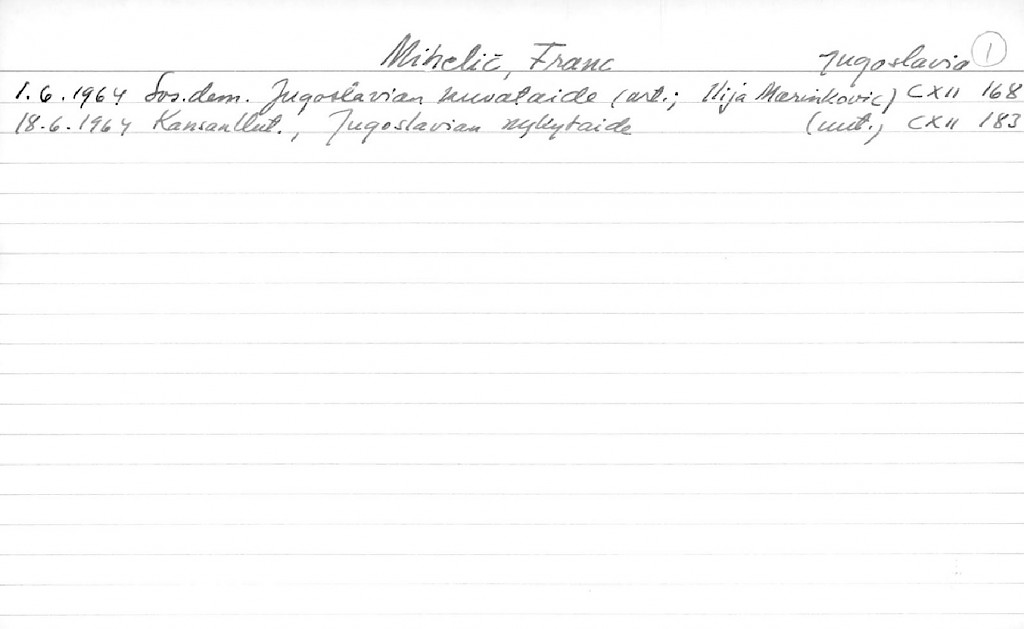 Mihelič, Franc Jugoslavia 1
1.6.1964 Sos.dem. Jugoslavian kuvataide (art.; Ilija Marinkovic) CXII 168
18.6.1964 Kansan Uut., Jugoslavian nykytaide (uut.) CXII 183